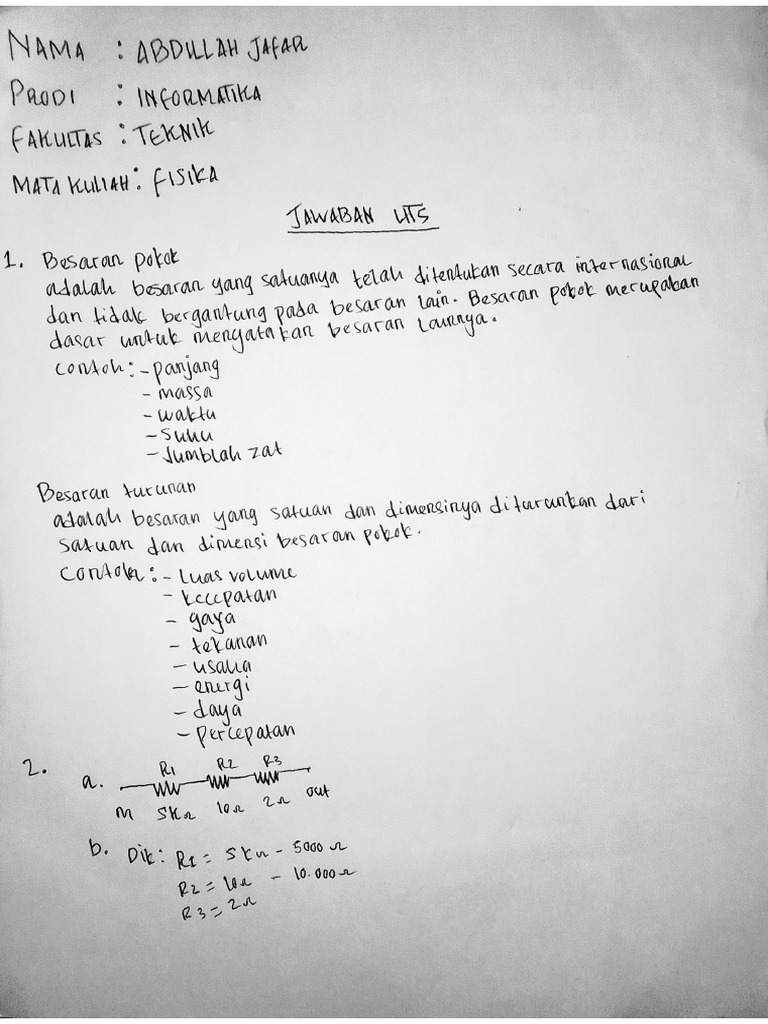 NAMA : ABDILLAH JAFAR
PRODI : INFORMATIKA
FAKULTAS : TEKNIK
MATA KULIAH : FISIKA
JAWABAN UTS
1. Besaran pokok
adalah besaran yang satuanya telah ditentukan secara internasional
dan tidak bergantung pada besaran lain. Besaran pokok merupakan
dasar untuk menyatakan besaran lainnya.
Contoh : - panjang
- massa
- waktu
- Suhu
- Jumblah zat
Besaran turunan
adalah besaran yang satuan dan dimensinya diturunkan dari
satuan dan dimensi besaran pokok.
Contoh : - Luas volume
- kecepatan
- gaya
- tekanan
- usaha
- energi
- daya
- percepatan
2. a. R1 R2 R3
m 5kΩ 10Ω 2Ω out
b. Dik : R1 = 5kΩ - 5000 Ω
R2 = 10Ω - 10.000Ω
R3 = 2Ω